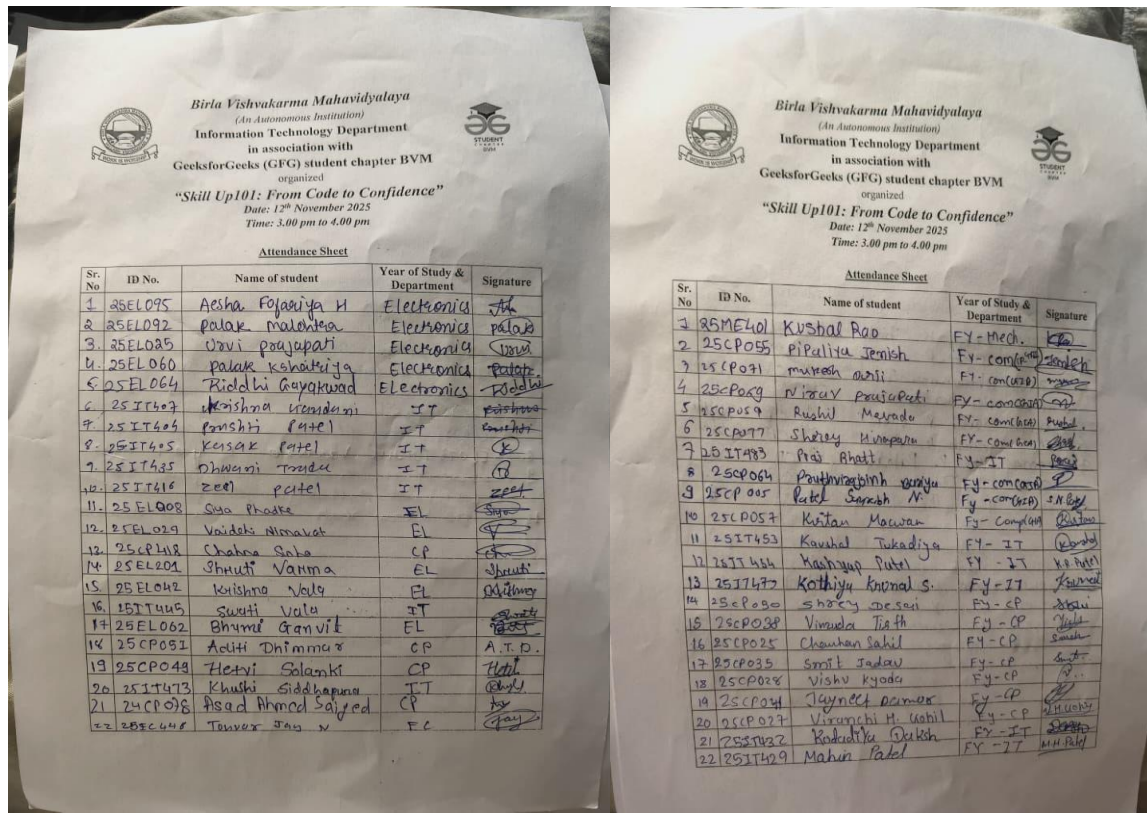 Birla Vishvakarma Mahavidyalaya
(An Autonomous Institution)
Information Technology Department
in association with
GeeksforGeeks (GFG) student chapter BVM
organized
"Skill Up101: From Code to Confidence"
Date: 12th November 2025
Time: 3.00 pm to 4.00 pm
STUDENT
CHAPTER
BVM
Attendance Sheet
Sr. No ID No. Name of student Year of Study & Department Signature
1 25EL095 Aesha Fofariya H Electronics
2 25EL092 Palak malohtra Electronics palak
3. 25EL025 Urvi prajapati Electronics Urvi
4. 25EL060 Palak kshatriya Electronics Palak
5. 25EL064 Riddhi Gayakwad Electronics Riddhi
6. 25IT407 krishna IT
7. 25IT404 Panshti Patel IT
8. 25IT405 Kasak Patel IT
9. 25IT435 Dhwani IT
10. 25IT416 zeel patel IT zeel
11. 25EL008 Siya Phadke EL Siya
12. 25EL029 Vaidehi Nimavat EL
13. 25CP418 Chahna CP
14. 25EL201 Shruti Varma EL Shruti
15. 25EL042 Krishna Vala EL
16. 25IT445 Swati Vala IT
17 25EL062 Bhumi Ganvit EL
18 25CP051 Aditi Dhimmar CP A.T.D.
19 25CP049 Hetvi Solanki CP Hetvi
20 25IT473 Khushi Siddhapura IT
21 24CP078 Asad Ahmed Saiyed CP
22 25EC446 Jay N EC Jay
Birla Vishvakarma Mahavidyalaya
(An Autonomous Institution)
Information Technology Department
in association with
GeeksforGeeks (GFG) student chapter BVM
organized
"Skill Up101: From Code to Confidence"
Date: 12th November 2025
Time: 3.00 pm to 4.00 pm
STUDENT
CHAPTER
BVM
Attendance Sheet
Sr. No ID No. Name of student Year of Study & Department Signature
1 25ME401 Kushal Rao FY-Mech.
2 25CP055 Pipaliya Jemish FY-com Jemish
3 25CP071 mukesh FY-com
4 25CP069 Nirav Prajapati FY-com(GIA)
5 25CP059 Rushil Mevada FY-com(GIA) Rushil.
6 25CP077 Shrey Hirapara FY-com(GIA)
7 25IT483 Bhatt FY-IT
8 25CP064 FY-com(GIA)
9 25CP005 Patel N. Fy-com(GIA) S.N.Patel
10 25CP057 Kritan Macwan Fy-Comp(GIA)
11 25IT453 Kaushal Tukadiya FY-IT Kaushal
12 25IT454 Kashyap Patel FY-IT K.P. Patel
13 25IT477 Kothiya Krunal S. FY-IT Krunal
14 25CP090 Shrey Desai FY-CP
15 25CP038 Tirth FY-CP
16 25CP025 Chauhan Sahil FY-CP
17 25CP035 Smit Jadav FY-CP Smit.
18 25CP028 Vishv Kyada FY-CP
19 25CP041 Jayneet Damor FY-CP
20 25CP027 Viranchi M. Gohil FY-CP V.M.Gohil
21 25IT432 Daksh FY-IT
22 25IT429 Mahin Patel FY-IT M.H.Patel